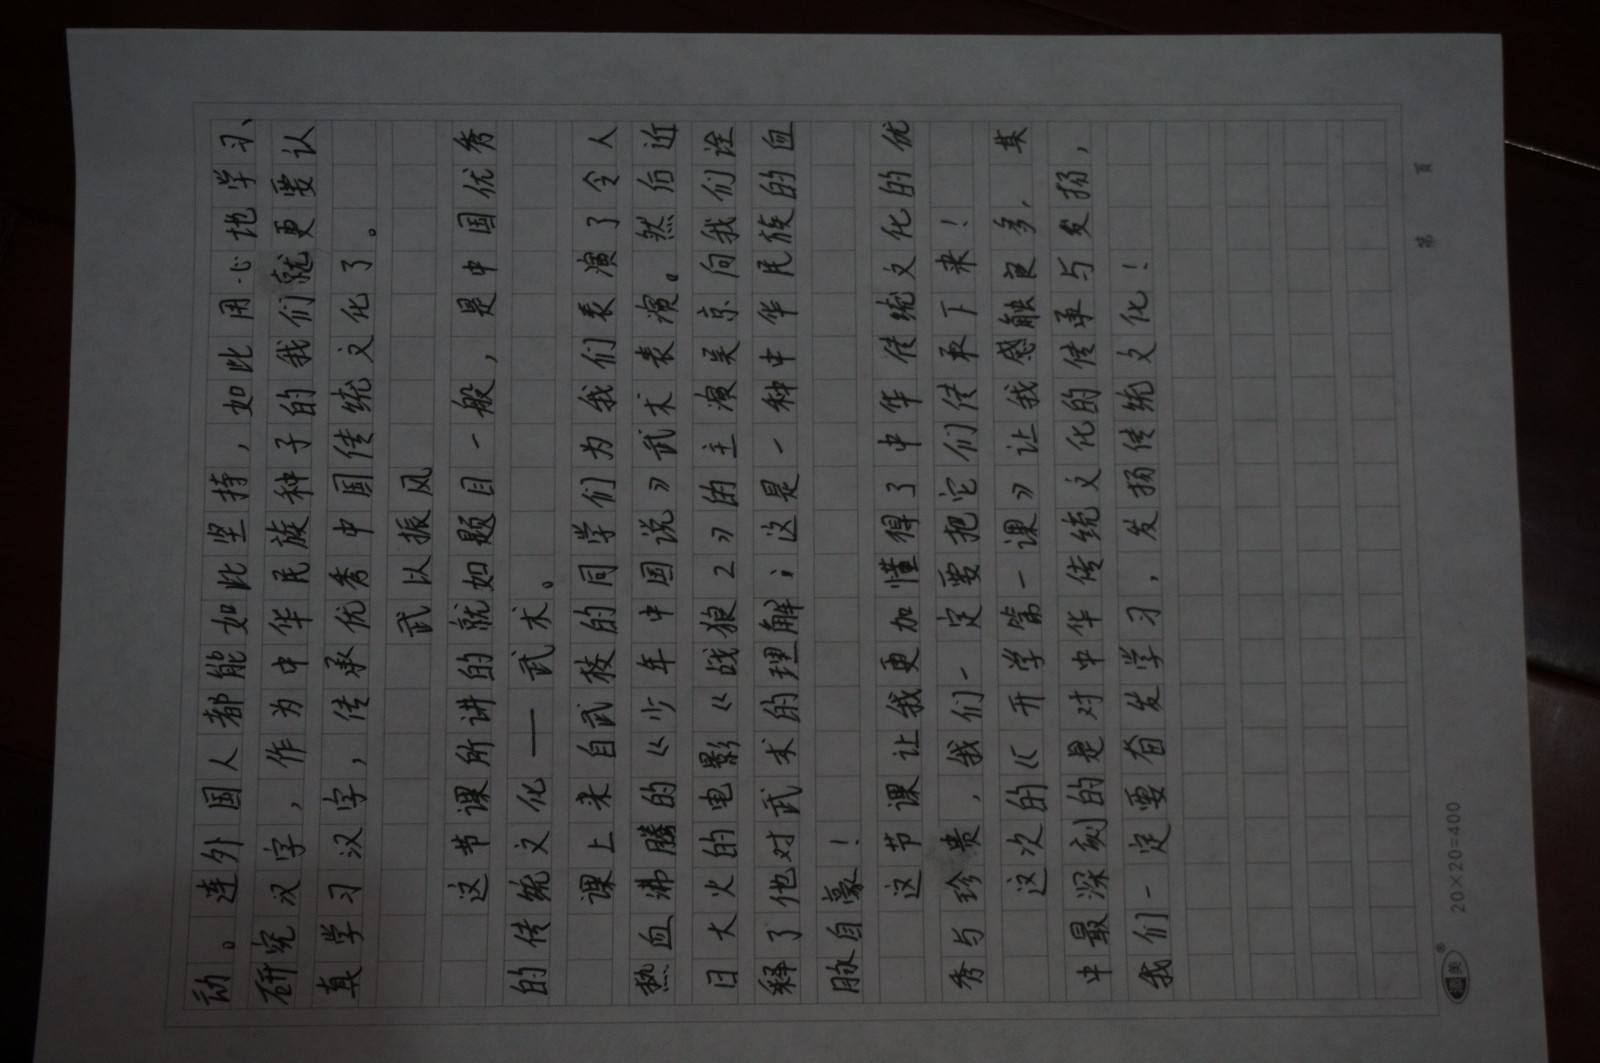 动。连外国人都能如此坚持，如此用心地学习、
研究汉字，作为中华民族种子的我们就更要认
真学习汉字，传承优秀中国传统文化了。
武以振风
这节课所讲的就如题目一般，是中国优秀
的传统文化——武术。
课上来自武校的同学们为我们表演了令人
热血沸腾的《少年中国说》武术表演。然后近
日大火的电影《战狼2》的主演吴京向我们诠
释了他对武术的理解；这是一种中华民族的血
脉自豪！
这节课让我更加懂得了中华传统文化的优
秀与珍贵，我们一定要把它们传承下来！
这次的《开学第一课》让我感触良多，其
中最深刻的是对中华传统文化的传承与发扬，
我们一定要奋发学习，发扬传统文化！
20×20=400
第 页